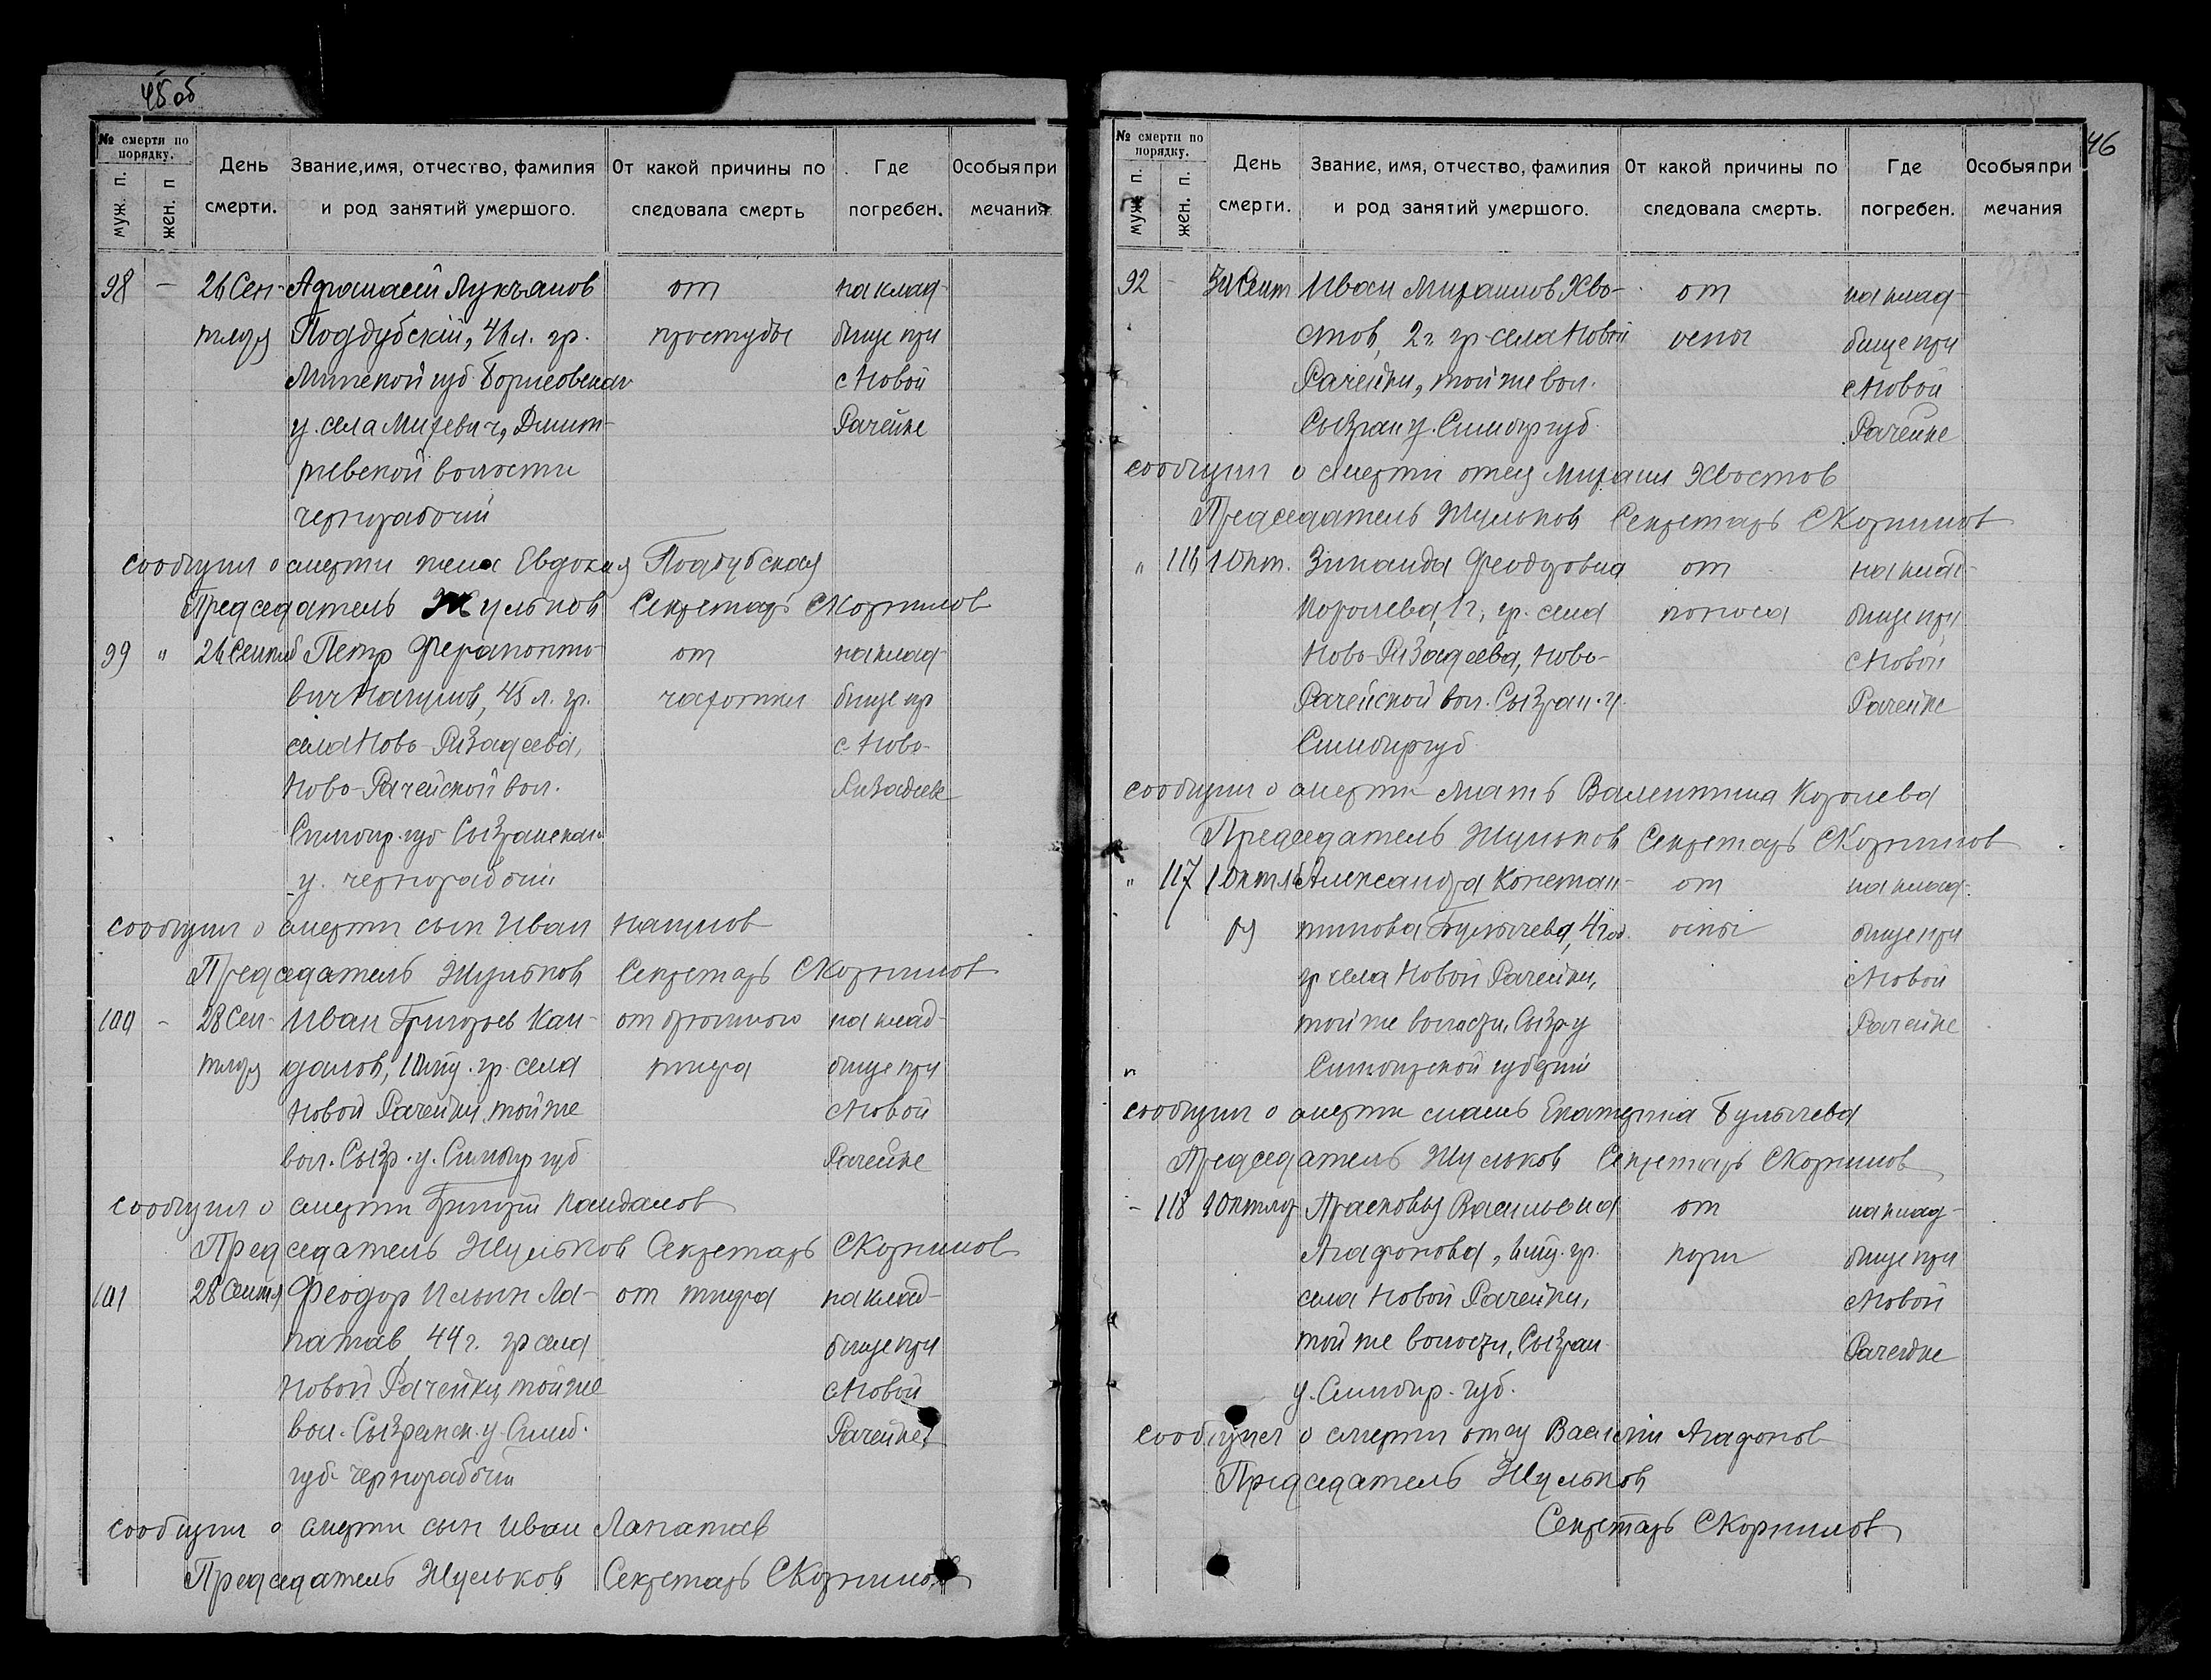 45 об
№ смерти по порядку.
муж. п.
жен. п
День смерти.
Звание, имя, отчество, фамилия и род занятий умершого.
От какой причины последовала смерть
Где погребен.
Особыя примечания
98 — 26 Сен- Афанасий Лукъянов от на клад-
тября Поддубский, л. гр. простуды бище при
Минской губ Борисовскаго с Новой
у. села Михевич, Дмит- Рачейке
риевской волости
чернорабочий
сообщил о смерти жена Евдокия Поддубская
Председатель Жульков Секретарь С Корнилов
99 " 26 Сентяб Петр Ферапонто- от на клад-
вич Нагулов, 45 л. гр. чахотки бище пр
села Ново-Ризадеева, с Ново-
Ново-Рачейской вол. Ризадеев
Симбир. губ Сызранскаго
у. чернорабочий
сообщил о смерти сын Иван Нагулов
Председатель Жульков Секретарь С Корнилов
100 - 28 Сен- Иван Григорьев Кан- от брюшного на клад-
тября далов, гр. села тифа бище при
Новой Рачейки, той же с Новой
вол. Сызр. у. Симбир губ Рачейке
сообщил о смерти Григорий Кандалов
Председатель Жульков Секретарь С Корнилов
101 28 Сентя Феодор Ильин Ла- от тифа на клад-
патав, 44 г. гр села бище при
Новой Рачейки, той же с Новой
вол. Сызранск. у Симб. Рачейке
губ чернорабочий
сообщил о смерти сын Иван Лапатав
Председатель Жульков Секретарь С Корнилов
46
№ смерти по порядку.
муж. п.
жен. п.
День смерти.
Звание, имя, отчество, фамилия и род занятий умершого.
От какой причины последовала смерть.
Где погребен.
Особыя примечания
92 - Сент Иван Михаилов Хво- от на клад-
стов, 2 г. гр села Новой оспы бище при
Рачейки, той же вол. с Новой
Сызран у. Симбир губ Рачейке
сообщил о смерти отец Михаил Хвостов
Председатель Жульков Секретарь С Корнилов
" 116 1 Окт. Зинаида Феодоровна от на клад-
Королева, 1 г, гр. села поноса бище при
Ново-Ризадеева, Ново- с Новой
Рачейской вол. Сызран. у. Рачейке
Симбир губ
сообщил о смерти мать Валентина Королева
Председатель Жульков Секретарь С Корнилов
" 117 1 Октяб Александра Констан- от на клад-
ря тинова Булычева, 4 год. оспы бище при
гр села Новой Рачейки, с Новой
той же волости, Сызр у Рачейке
" Симбирской губернии
сообщил о смерти мать Екатерина Булычева
Председатель Жульков Секретарь С Корнилов
- 118 1 Октяб Прасковья Васильевна от на клад-
Агафонова, гр. кори бище при
села Новой Рачейки, с Новой
той же волости, Сызран Рачейке
у. Симбир. губ.
сообщил о смерти отец Василий Агафонов
Председатель Жульков
Секретарь С Корнилов